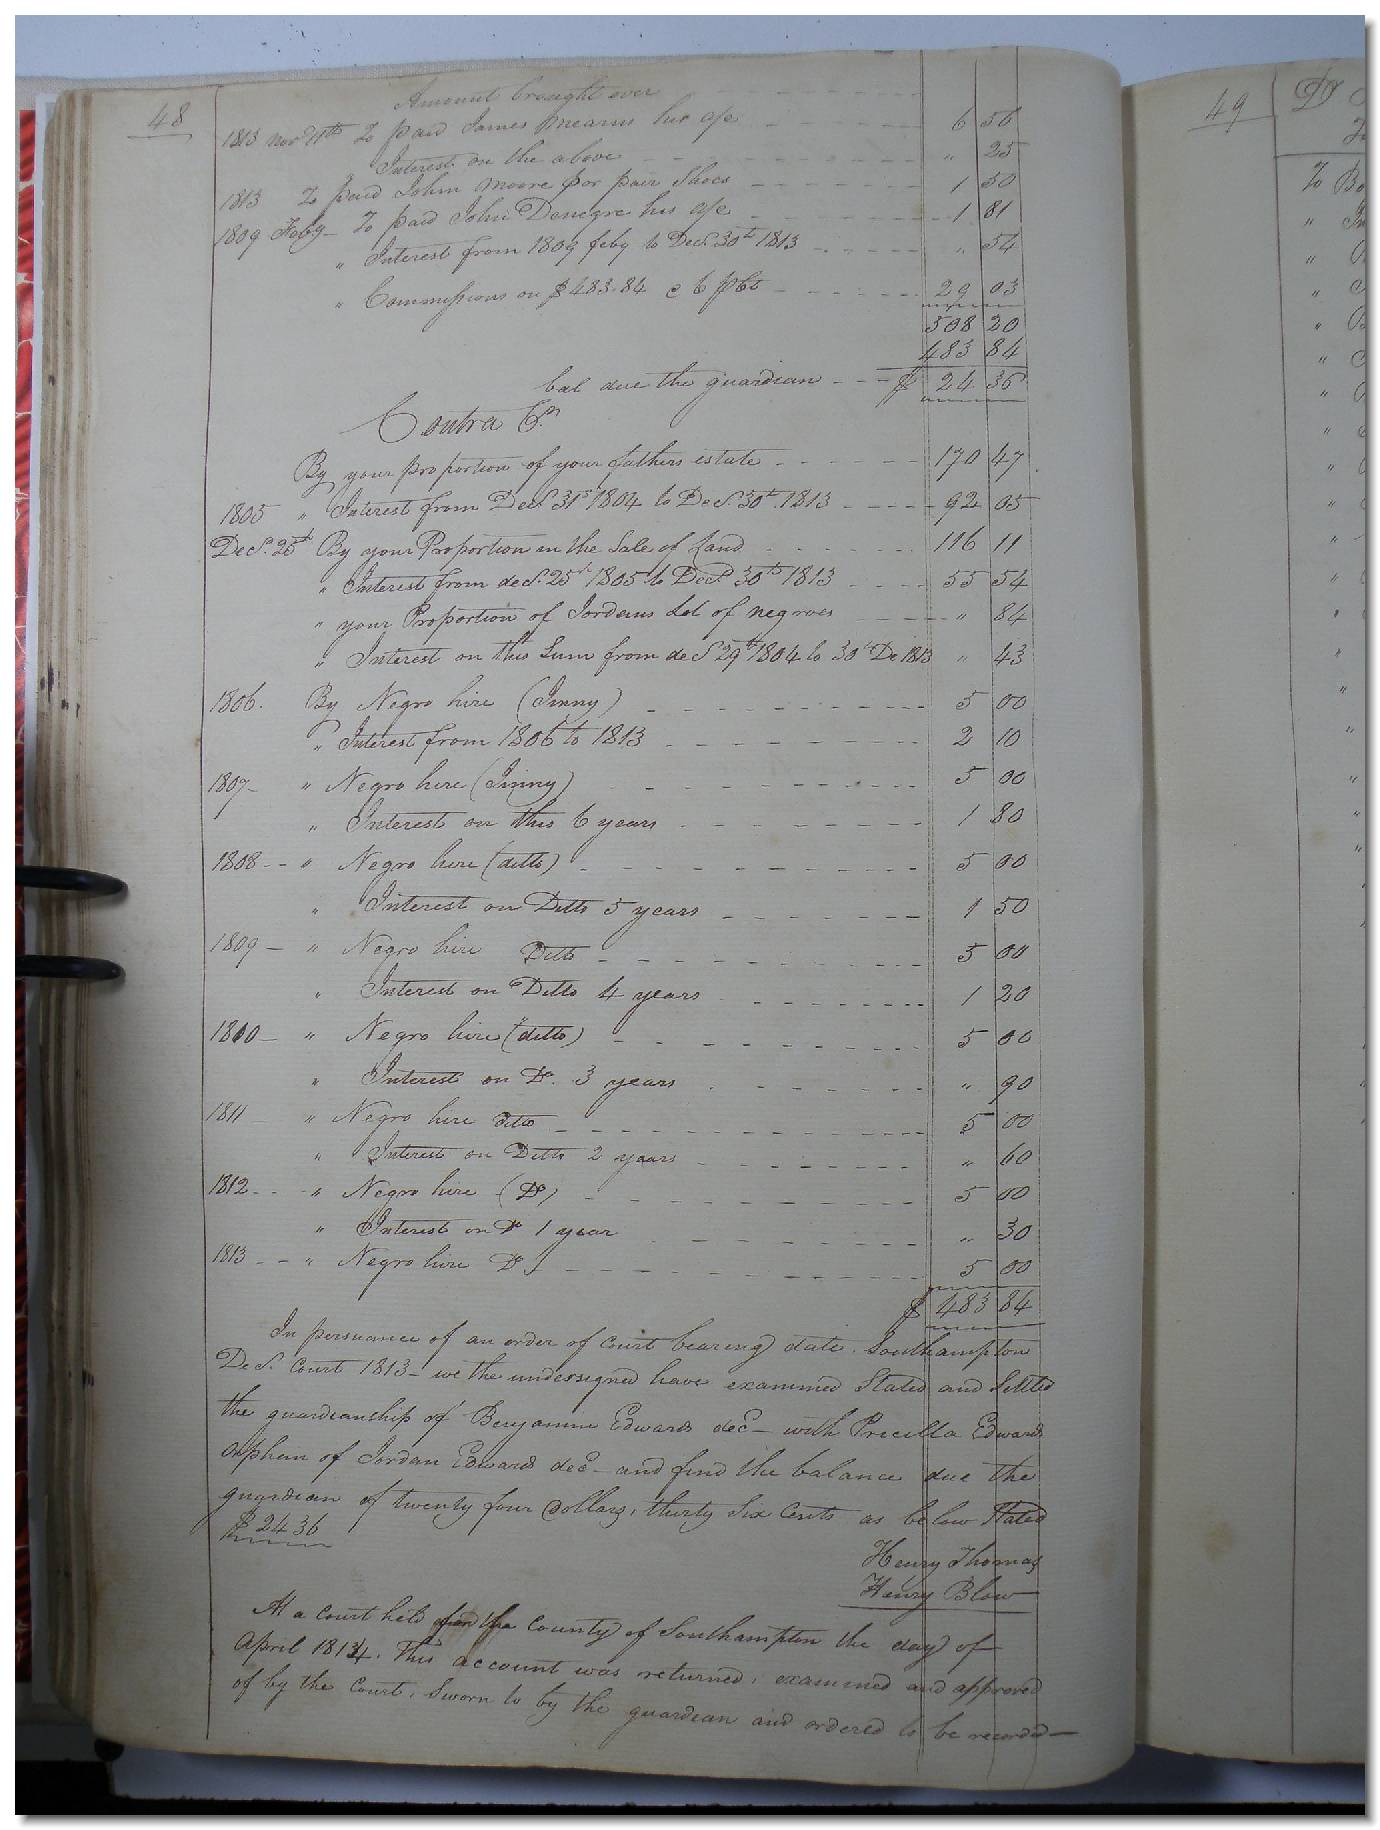 48
Amount brought over
1813 Novr 11th To paid James Mearns his a/c 6 56
Interest on the above " 25
1813 To paid John Moore for pair Shoes 1 50
1809 Feby To paid John Denegre his a/c 1 81
" Interest from 1809 feby to Decr. 30th 1813 " 54
" Commissions on $483.84 @ 6 pCt 29 03
508 20
483 84
bal due the guardian $ 24 36
Contra Cr.
By your proportion of your fathers estate 170 47
1805 " Interest from Decr. 31st 1804 to Decr. 30th 1813 92 05
Decr. 25th By your Proportion in the Sale of Land 116 11
" Interest from decr. 25th 1805 to Decr. 30th 1813 55 54
" your Proportion of Jordans Lot of negroes " 84
" Interest on this Sum from decr 29th 1804 to 30th De 1813 " 43
1806. By Negro hire (Jinny) 5 00
" Interest from 1806 to 1813 2 10
1807 " Negro hire (Jinny) 5 00
" Interest on this 6 years 1 80
1808 " Negro hire (ditto) 5 00
" Interest on Ditto 5 years 1 50
1809 " Negro hire Ditto 5 00
" Interest on Ditto 4 years 1 20
1810 " Negro hire (ditto) 5 00
" Interest on Do. 3 years " 90
1811 " Negro hire ditto 5 00
" Interest on Ditto 2 years " 60
1812 " Negro hire (Do) 5 00
" Interest on Do 1 year " 30
1813 " Negro hire Do 5 00
$ 483 84
In persuance of an order of Court bearing date Southampton
Decr. Court 1813 - we the undersigned have examined Stated and Settled
the guardianship of Benjamin Edwards decd - with Precilla Edwards
orphan of Jordan Edwards decd - and find the balance due the
guardian of twenty four dollars, thirty Six Cents as below Stated
$ 24 36
Henry Thomas
Henry Blow
At a Court held for the County of Southampton the day of
April 1814. This account was returned, examined and approved
of by the Court, Sworn to by the guardian and ordered to be recorded—
49
Dr
To Bo
" In